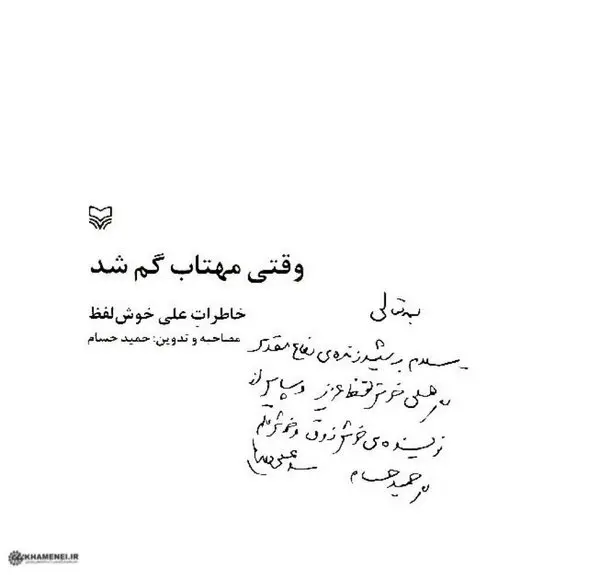 وقتی مهتاب گم شد
خاطراتِ علی خوش‌لفظ
مصاحبه و تدوین: حمید حسام
بسمه‌تعالی
سلام بر شهید زنده‌ی دفاع مقدس
علی خوش‌لفظ عزیز و سپاس از
نویسنده‌ی خوش‌ذوق و خوش‌قلم
حمید حسام
KHAMENEI.IR